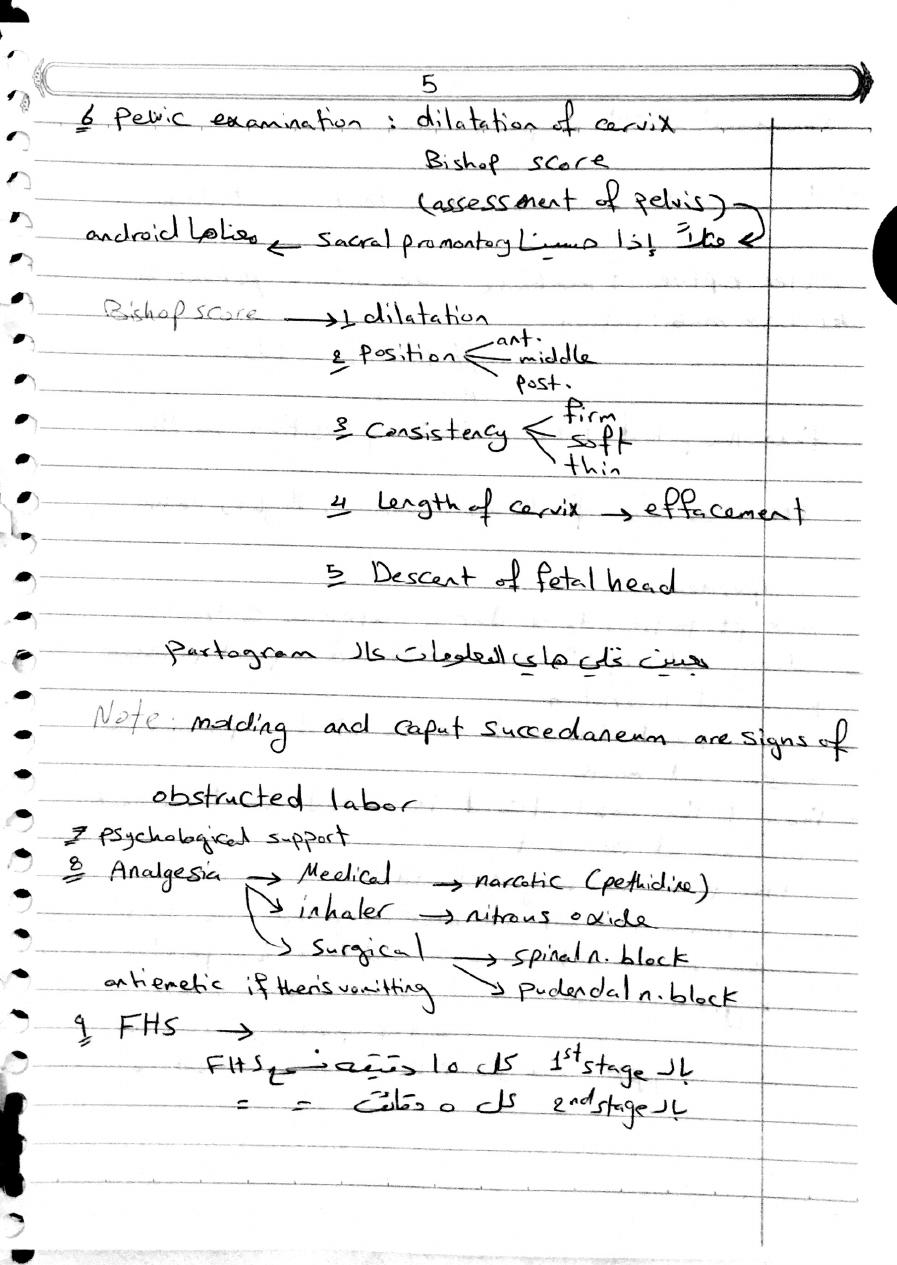 5
6 Pelvic examination : dilatation of cervix
Bishop score
(assessment of pelvis)
مثلاً إذا حسينا sacral promontory ← معناها android
Bishop score → 1 dilatation
2 Position ant.
middle
post.
3 Consistency firm
soft
thin
4 Length of cervix → effacement
5 Descent of fetal head
بعدين نخلي هاي المعلومات كال partogram
Note: molding and caput succedaneum are signs of
obstructed labor
7 psychological support
8 Analgesia → Medical → narcotic (pethidine)
→ inhaler → nitrous oxide
→ surgical → spinal n. block
antiemetic if theris vomitting → pudendal n. block
9 FHS →
بال 1st stage كل ١٥ دقيقة نسمع FHS
بال 2nd stage كل ٥ دقائق = =